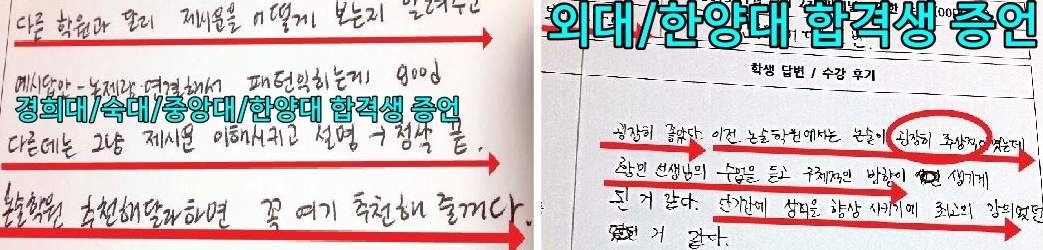 다른 학원과 달리 제시문을 어떻게 보는지 알려주고
예시답안-논제랑 연결해서 패턴익히는게 good
경희대/숙대/중앙대/한양대 합격생 증언
다른데는 그냥 제시문 이해시키고 설명 → 정삭 끝.
논술학원 추천해달라하면 꼭 여기 추천해 줄거다.
외대/한양대 합격생 증언
학생 답변 / 수강 후기
굉장히 좋았다. 이전 논술학원에서는 논술이 굉장히 추상적이었는데
선생님의 수업을 듣고 구체적인 방향이 생기게
된 거 같다. 단기간에 실력을 향상 시키기에 최고의 강의였던
거 같다.